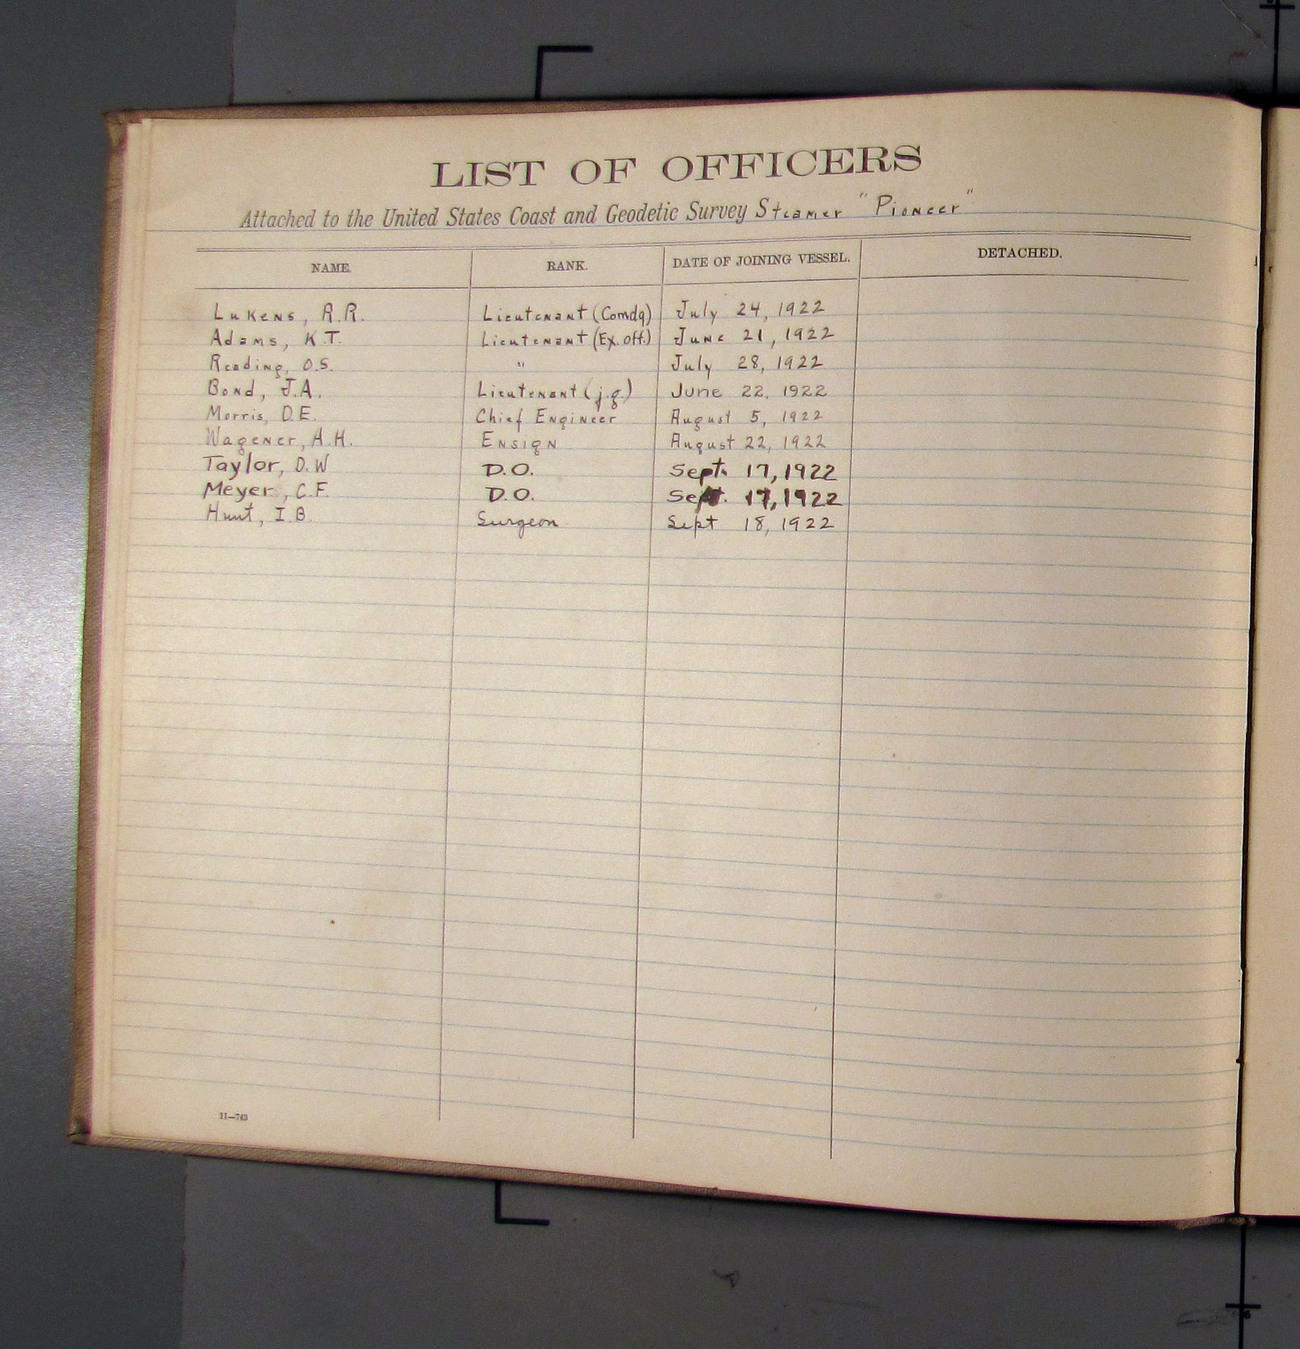 LIST OF OFFICERS
Attached to the United States Coast and Geodetic Survey Steamer "Pioneer"
NAME. RANK. DATE OF JOINING VESSEL. DETACHED.
Lukens, R.R. Lieutenant (Comdg) July 24, 1922
Adams, K.T. Lieutenant (Ex. off.) June 21, 1922
Reading, O.S. " July 28, 1922
Bond, J.A. Lieutenant (j.g.) June 22, 1922
Morris, D.E. Chief Engineer August 5, 1922
Wagener, A.H. Ensign August 22, 1922
Taylor, D.W D.O. Sept. 17, 1922
Meyer, C.F. D.O. Sept. 17, 1922
Hunt, I.B. Surgeon Sept 18, 1922
11—743